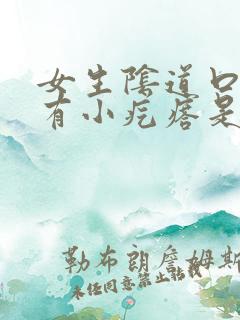 女生陰道口
有小疙瘩是
勒布朗詹姆斯
未任同意禁止轉載